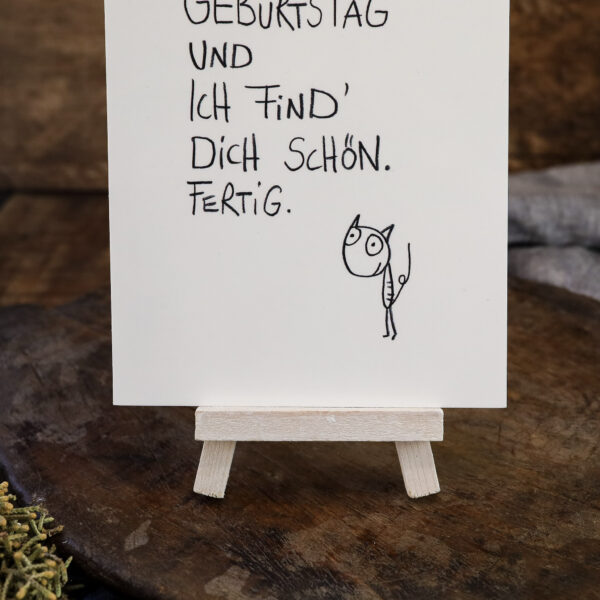 GEBURTSTAG
UND
ICH FIND'
DICH SCHÖN.
FERTIG.